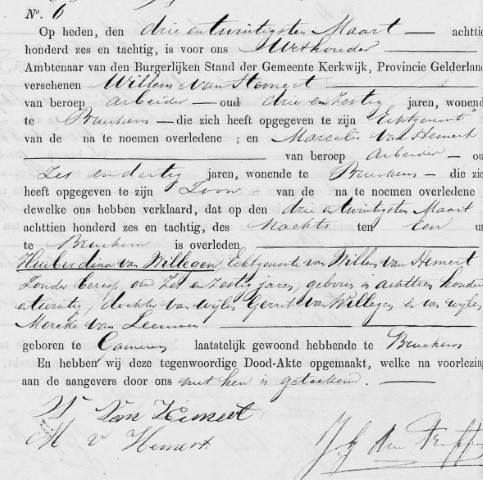 N°. 6
Op heden, den drie en twintigsten Maart — achttien
honderd zes en tachtig, is voor ons Wethouder
Ambtenaar van den Burgerlijken Stand der Gemeente Kerkwijk, Provincie Gelderland
verschenen Willem van Hemert
van beroep arbeider — oud drie en zestig jaren, wonende
te Bruchem — die zich heeft opgegeven te zijn Echtgenoot
van de na te noemen overledene ; en Marcelis van Hemert
van beroep arbeider — ou
Zes en dertig jaren, wonende te Bruchem — die zi
heeft opgegeven te zijn Zoon — van de na te noemen overledene
dewelke ons hebben verklaard, dat op den drie en twintigsten Maart
achttien honderd zes en tachtig, des Nachts ten Een u
te Bruchem is overleden
Huiberdina van Willegen Echtgenoote van Willem van Hemert
Zonder beroep oud Zes en zestig jaren, geboren in achttien honderd
en twintig, dochter van wijlen Gerrit van Willegen en van wijlen
Merike van Leeuwen
geboren te Gameren laatstelijk gewoond hebbende te Bruchem
En hebben wij deze tegenwoordige Dood-Akte opgemaakt, welke na voorlezing
aan de aangevers door ons met hen is geteekend. —
W van Hemert
M v Hemert